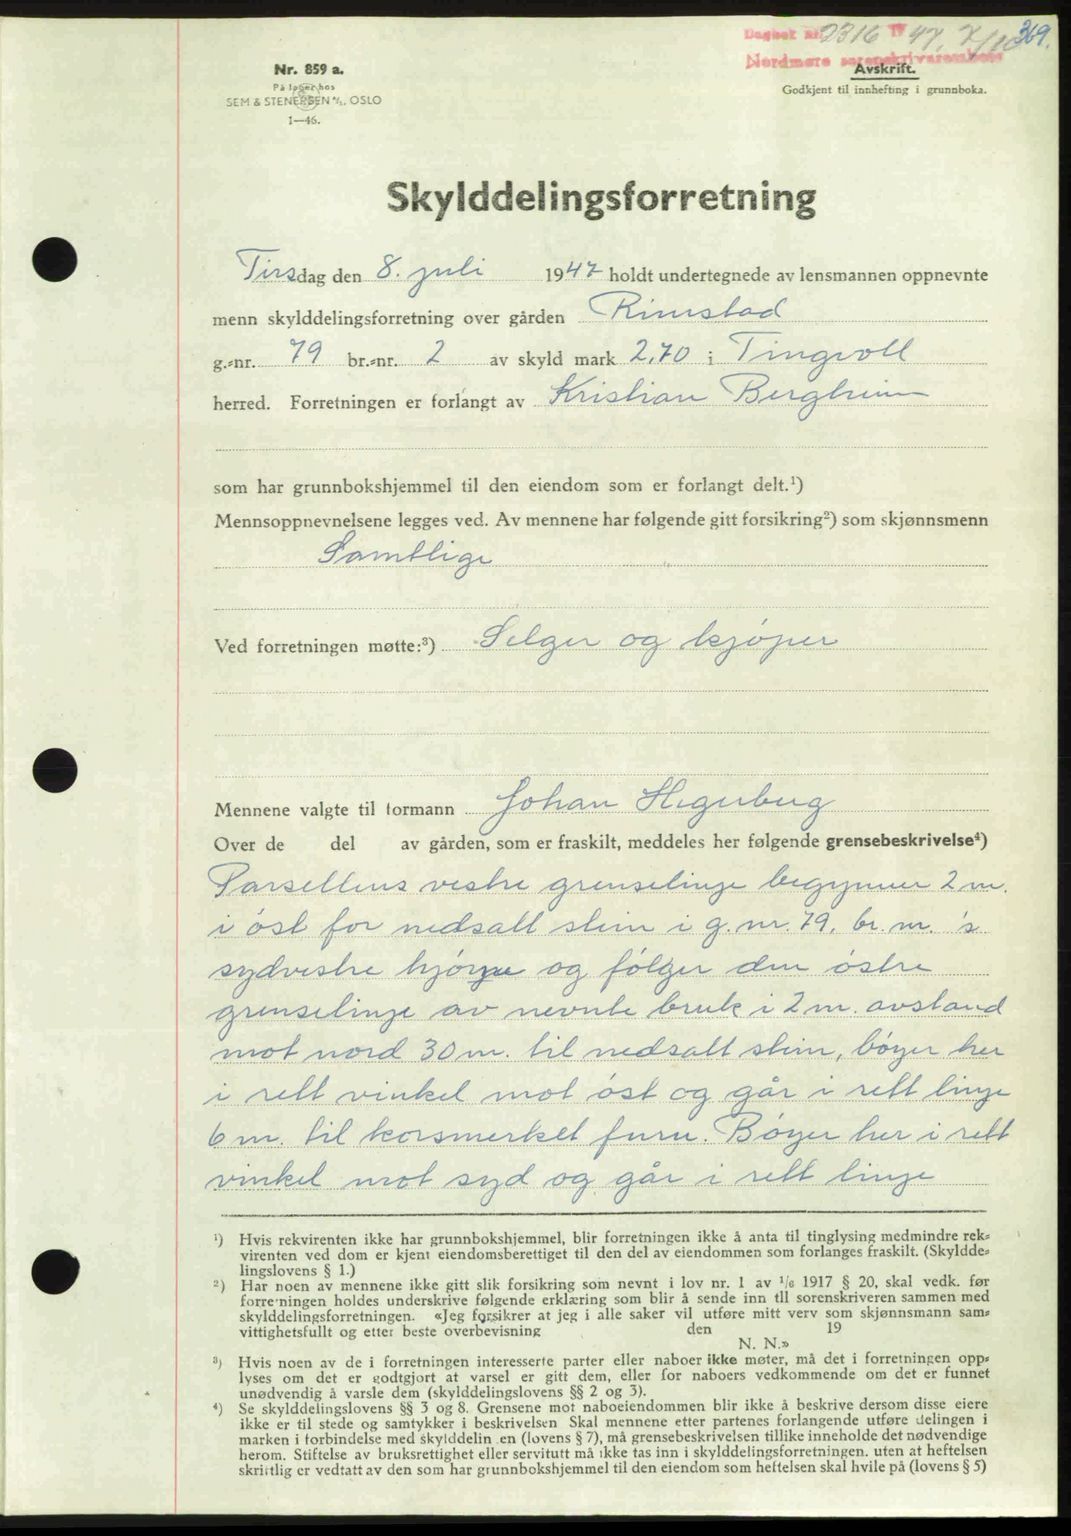 Dagbok nr. 2316 19 47. 7/10 369.
Nordmøre sorenskriverembete
Nr. 859 a.
På lager hos
SEM & STENERSEN A/S, OSLO
1—46.
Avskrift.
Godkjent til innhefting i grunnboka.
Skylddelingsforretning
Tirsdag den 8. juli 1947 holdt undertegnede av lensmannen oppnevnte
menn skylddelingsforretning over gården Rimstad
g.-nr. 79 br.-nr. 2 av skyld mark 2,70 i Tingvoll
herred. Forretningen er forlangt av Kristian Bergheim
som har grunnbokshjemmel til den eiendom som er forlangt delt.¹)
Mennsoppnevnelsene legges ved. Av mennene har følgende gitt forsikring²) som skjønnsmenn
Samtlige
Ved forretningen møtte:³) Selger og kjøper
Mennene valgte til formann Johan Hegerberg
Over de del av gården, som er fraskilt, meddeles her følgende grensebeskrivelse⁴)
Parsellens vestre grenselinje begynner 2 m.
i øst for nedsatt stein i g. nr. 79, br. nr. 's
sydvestre hjørne og følger den østre
grenselinje av nevnte bruk i 2 m. avstand
mot nord 30 m. til nedsatt stein, bøyer her
i rett vinkel mot øst og går i rett linje
6 m. til korsmerket furu. Bøyer her i rett
vinkel mot syd og går i rett linje
¹) Hvis rekvirenten ikke har grunnbokshjemmel, blir forretningen ikke å anta til tinglysing medmindre rek-
virenten ved dom er kjent eiendomsberettiget til den del av eiendommen som forlanges fraskilt. (Skyldde-
lingslovens § 1.)
²) Har noen av mennene ikke gitt slik forsikring som nevnt i lov nr. 1 av 1/6 1917 § 20, skal vedk. før
forretningen holdes underskrive følgende erklæring som blir å sende inn til sorenskriveren sammen med
skylddelingsforretningen. «Jeg forsikrer at jeg i alle saker vil utføre mitt verv som skjønnsmann sam-
vittighetsfullt og etter beste overbevisning den 19
N. N.»
³) Hvis noen av de i forretningen interesserte parter eller naboer ikke møter, må det i forretningen opp-
lyses om det er godtgjort at varsel er gitt dem, eller for naboers vedkommende om det er funnet
unødvendig å varsle dem (skylddelingslovens §§ 2 og 3).
⁴) Se skylddelingslovens §§ 3 og 8. Grensene mot naboeiendommen blir ikke å beskrive dersom disse eiere
ikke er til stede og samtykker i beskrivelsen Skal mennene etter partenes forlangende utføre delingen i
marken i forbindelse med skylddelin en (lovens § 7), må grensebeskrivelsen tillike inneholde det nødvendige
herom. Stiftelse av bruksrettighet eller servitutt må ikke tas inn i skylddelingsforretningen, uten at heftelsen
skriftlig er vedtatt av den som har grunnbokshjemmel til den eiendom som heftelsen skal hvile på (lovens § 5)